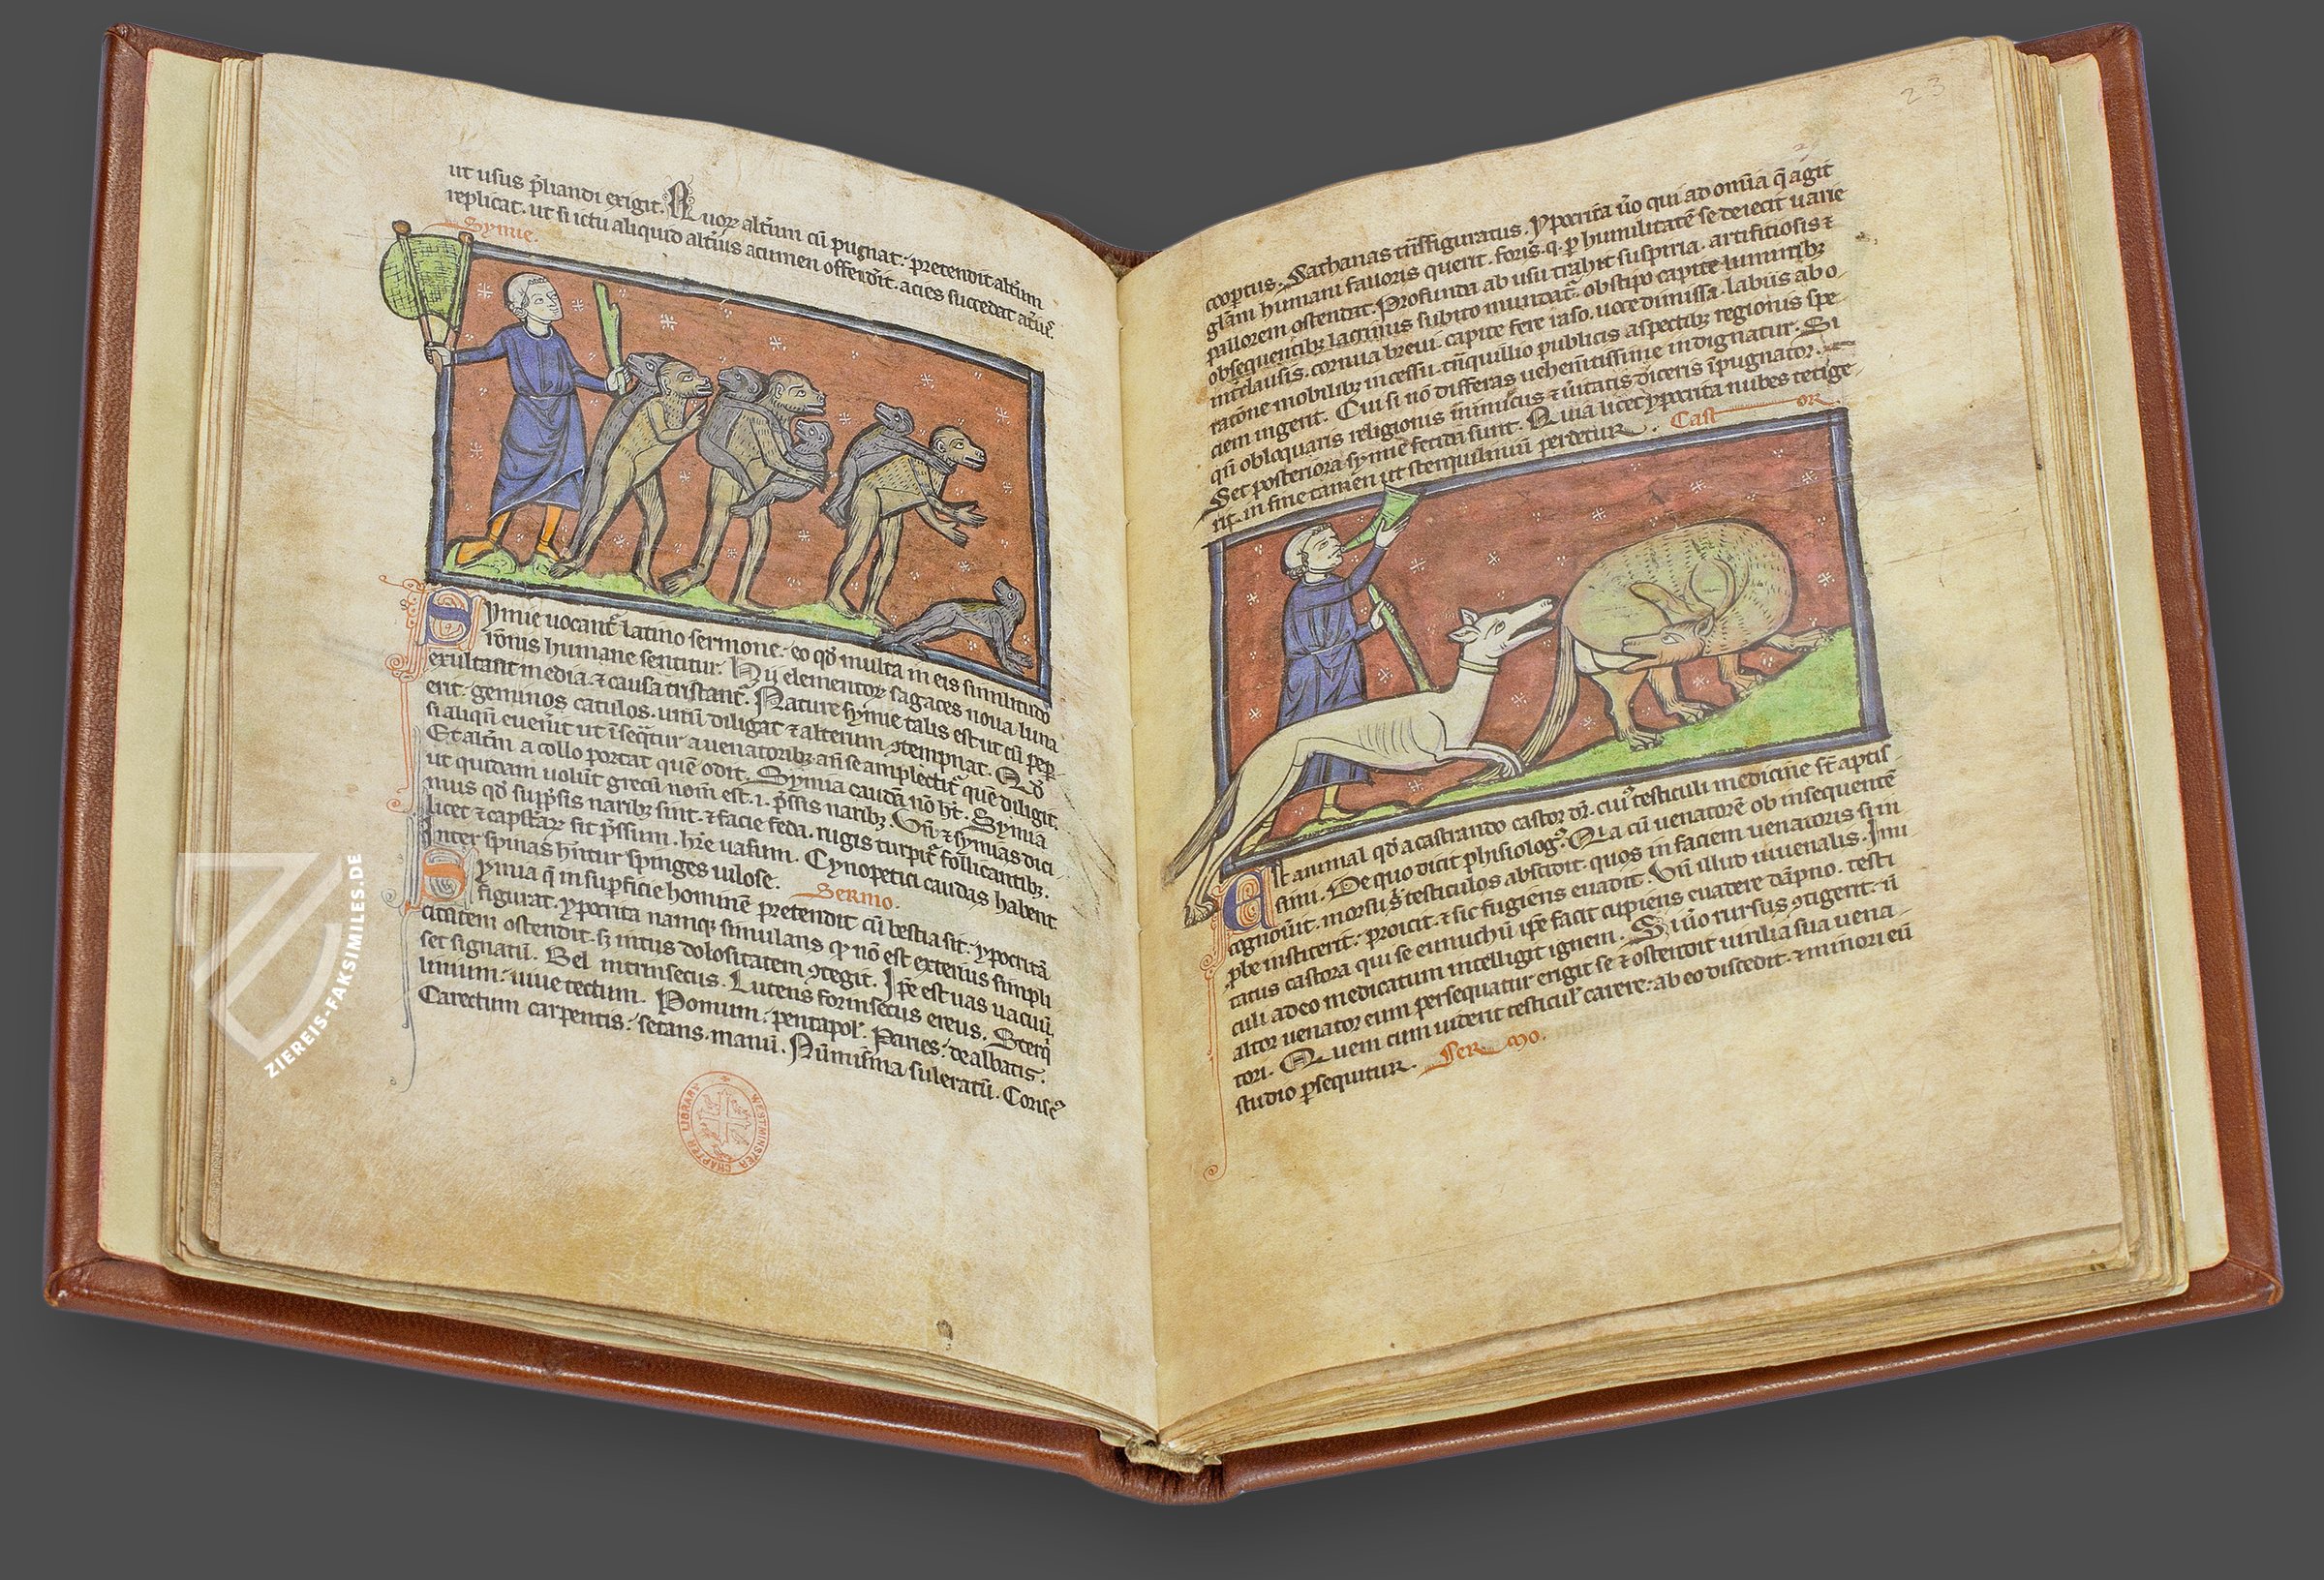 ut usus p̄liandi exigit. Quoꝝ alt̄um cū pugnat: pretendit alt̄um
replicat. ut si ictu aliquid alt̄ius acumen offend̄it. acies succedat
Symie.
Symie uocant̄ latino sermone. eo qd̄ multa in eis similitudo
rōnis humane sentitur. Hij elementoꝝ sagaces noua luna
exultant media. ⁊ causa tristant̄. Nature symie talis est ut cū pep̄
erit. geminos catulos. unū diligat ⁊ alterum ꝯtempnat. Qd̄
si aliqn̄ euen̄it ut īseq̄tur a uenatoribꝫ an̄ se amplectit̄ quē diligit.
Et alt̄m a collo portat quē odit. Symia caudā nō ht̄. Symia
ut quidam uolūt grecū nom̄ est .i. p̄ssis naribꝫ. Vn̄ ⁊ symias dici
mus qd̄ supp̄ssis naribꝫ sint. ⁊ facie feda. rugis turpit̄ follicantibꝫ.
licet ⁊ capellaꝝ sit p̄ssum. hr̄e uasum. Cynopetici caudas habent
Inter spinas hn̄tur spinges uilose. Sermo.
Symia q̄ in sup̄ficie hominē pretendit cū bestia sit: ypocritā
figurat. ypocrita namqꝫ simulans qꝫ nō est exterius simpli
citatem ostendit. sꝫ intus dolositatem ꝯtegit. Ip̄e est uas uacuū.
set signatū. Bel intrinsecus. Luteus forinsecus ereus. Sterq̄
linium: niue tectum. Pomum: pentapol̄. Paries: dealbatis.
Carectum carpentis: secans. manū. Nūmisma suberatū. Conse
WESTMINSTER CHAPTER LIBRARY
ZIEREIS-FAKSIMILES.DE
23
coop̄tus. Sathanas tn̄sfiguratus. Ypocrita ūo qui ad om̄ia q̄ agit
gl̄am humani fauoris querit. foris. q. p humilitatē se deiecit uarie
pallorem ostendat. Profunda ab usu trahit suspiria. artificiosis ⁊
obsequentibꝫ lacrimis subito mundat̄. obstipo capite luminibꝫ
int̄clausis. cornua breui. capite fere raso. uoce dimissa. labiis ab o
ratōne mobilibꝫ incessu. tn̄quillio publicis aspectibꝫ regionis spe
ciem ingerit. Cui si nō differas uehem̄tissime indignatur. Si
qn̄ obloquaris religionis inimicus ⁊ ūitatis diceris īpugnator.
Set posteriora symie fetida sunt. Quia licet ypocrita nubes tetige
rit. in fine tamen ut sterquiliniū perdetur. Castor.
Est animal qd̄ a castrando castor dr̄. cui testiculi medicine st̄ aptis
simi. De quo dicit phisiolog. Qia cū uenatorē ob insequentē
cognou̅it. morsu s̄ testiculos abscidit. quos in faciem uenatoris si in
ꝓbe institerit: proicit. ⁊ sic fugiens euadit. Vn̄ illud iuuenalis. Imi
tatus castora qui se eunuchū ip̄e facit cupiens euadere dāpno. testi
culi adeo medicatum intelligit ignem. Si ūo rursus ꝯtigerit. ū
altor uenator eum persequatur erigit se ⁊ ostendit uirilia sua uena
tori. Quem cum uiderit testicul̄ carere: ab eo discedit. ⁊ minori eū
studio ꝑsequitur. Sermo.